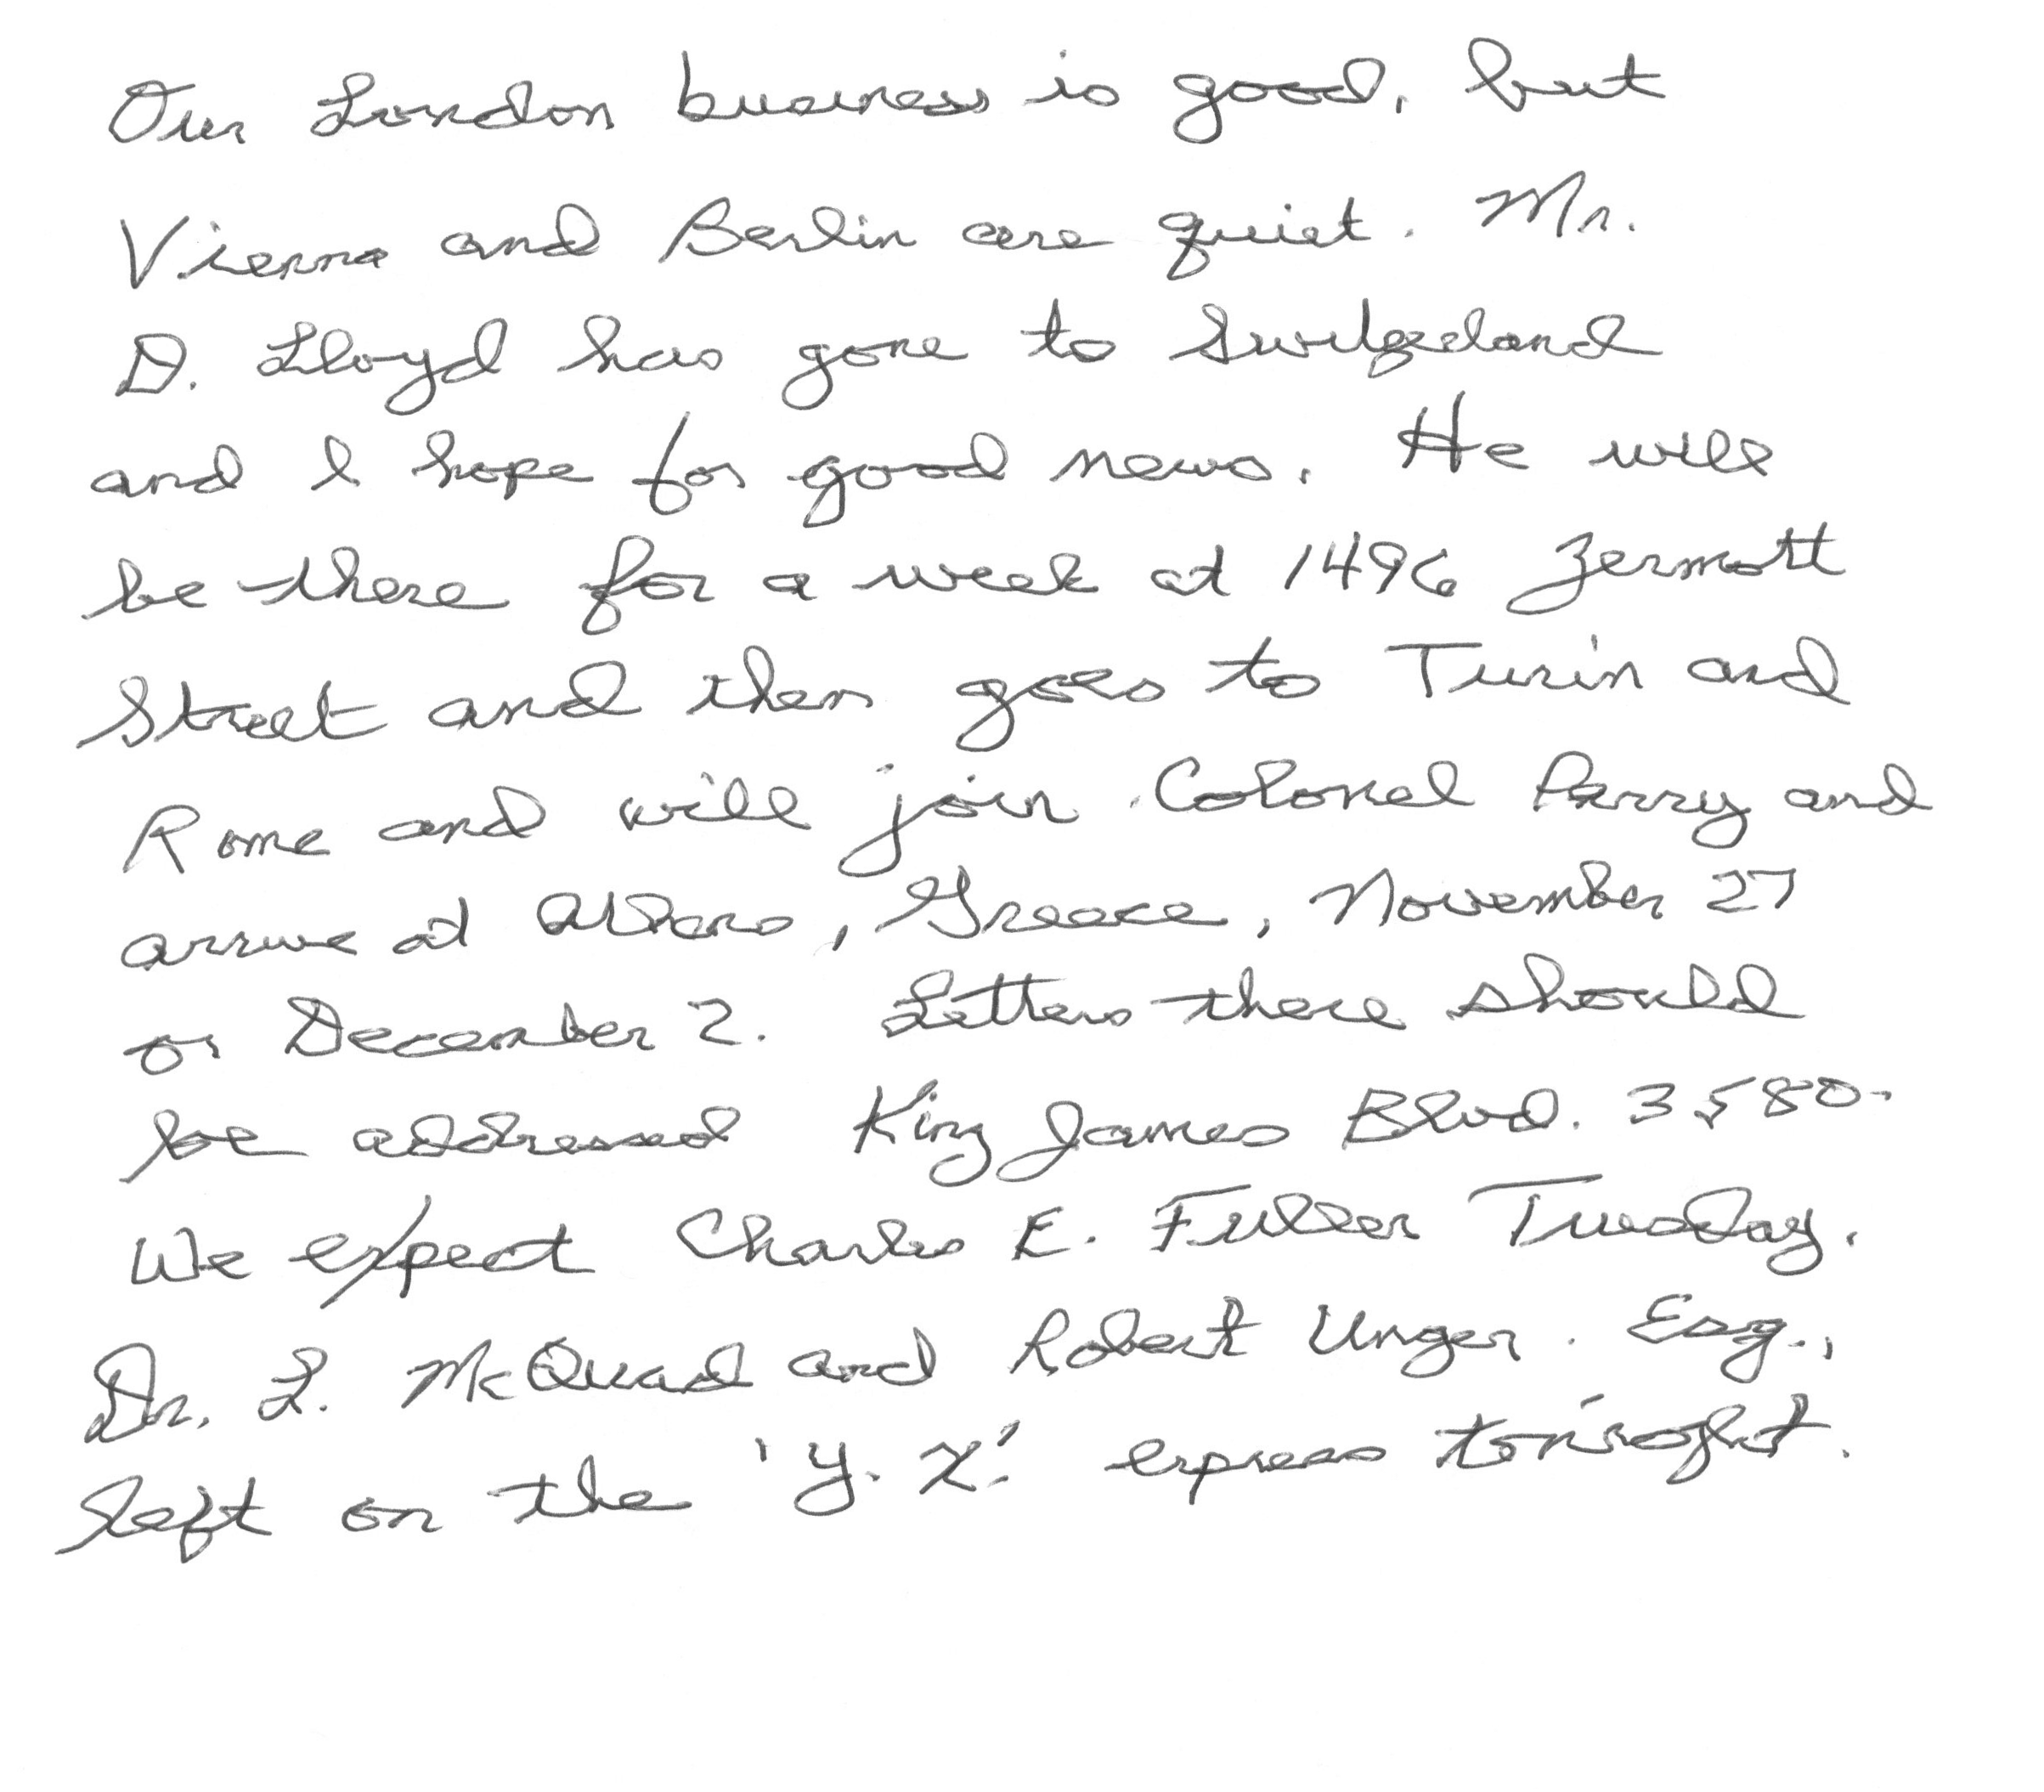 Our London business is good, but
Vienna and Berlin are quiet. Mr.
D. Lloyd has gone to Switzerland
and I hope for good news. He will
be there for a week at 1496 Zermott
Street and then goes to Turin and
Rome and will join Colonel Parry and
arrive at Athens, Greece, November 27
or December 2. Letters there should
be addressed King James Blvd. 3580.
We expect Charles E. Fuller Tuesday.
Dr. L. McQuad and Robert Unger. Esq.,
left on the 'Y. X.' express tonight.